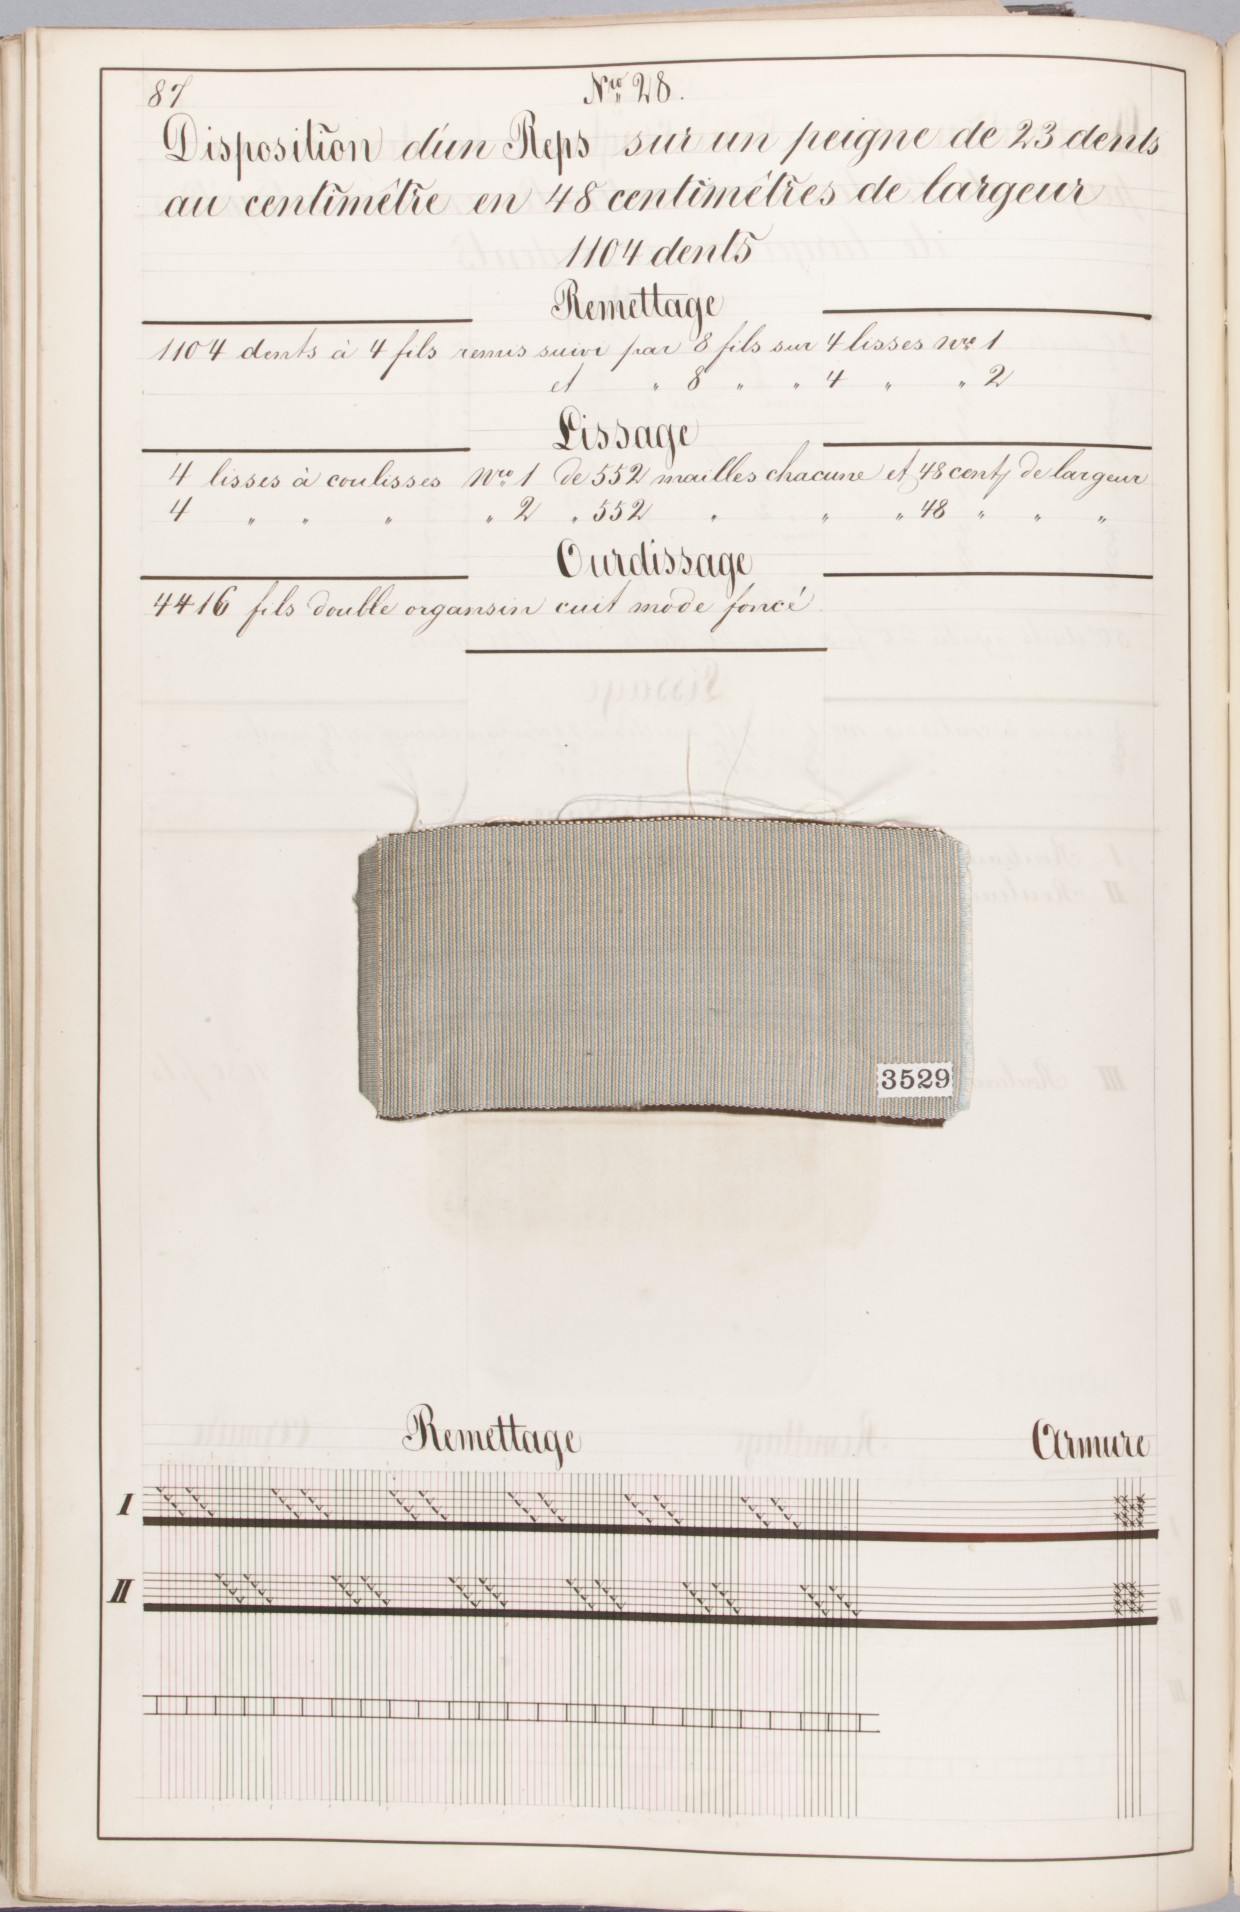 87
Nro 28.
Disposition d'un Reps sur un peigne de 23 dents
au centimêtre en 48 centimêtres de largeur
1104 dents
Remettage
1104 dents à 4 fils remis suivi par 8 fils sur 4 lisses Nro 1
et " 8 " " 4 " " 2
Lissage
4 lisses à coulisses Nro 1 de 552 mailles chacune et 48 cent de largeur
4 " " " " 2 " 552 " " " 48 " " "
Ourdissage
4416 fils double organsin cuit mode foncé
3529
Remettage
Armure
I
II